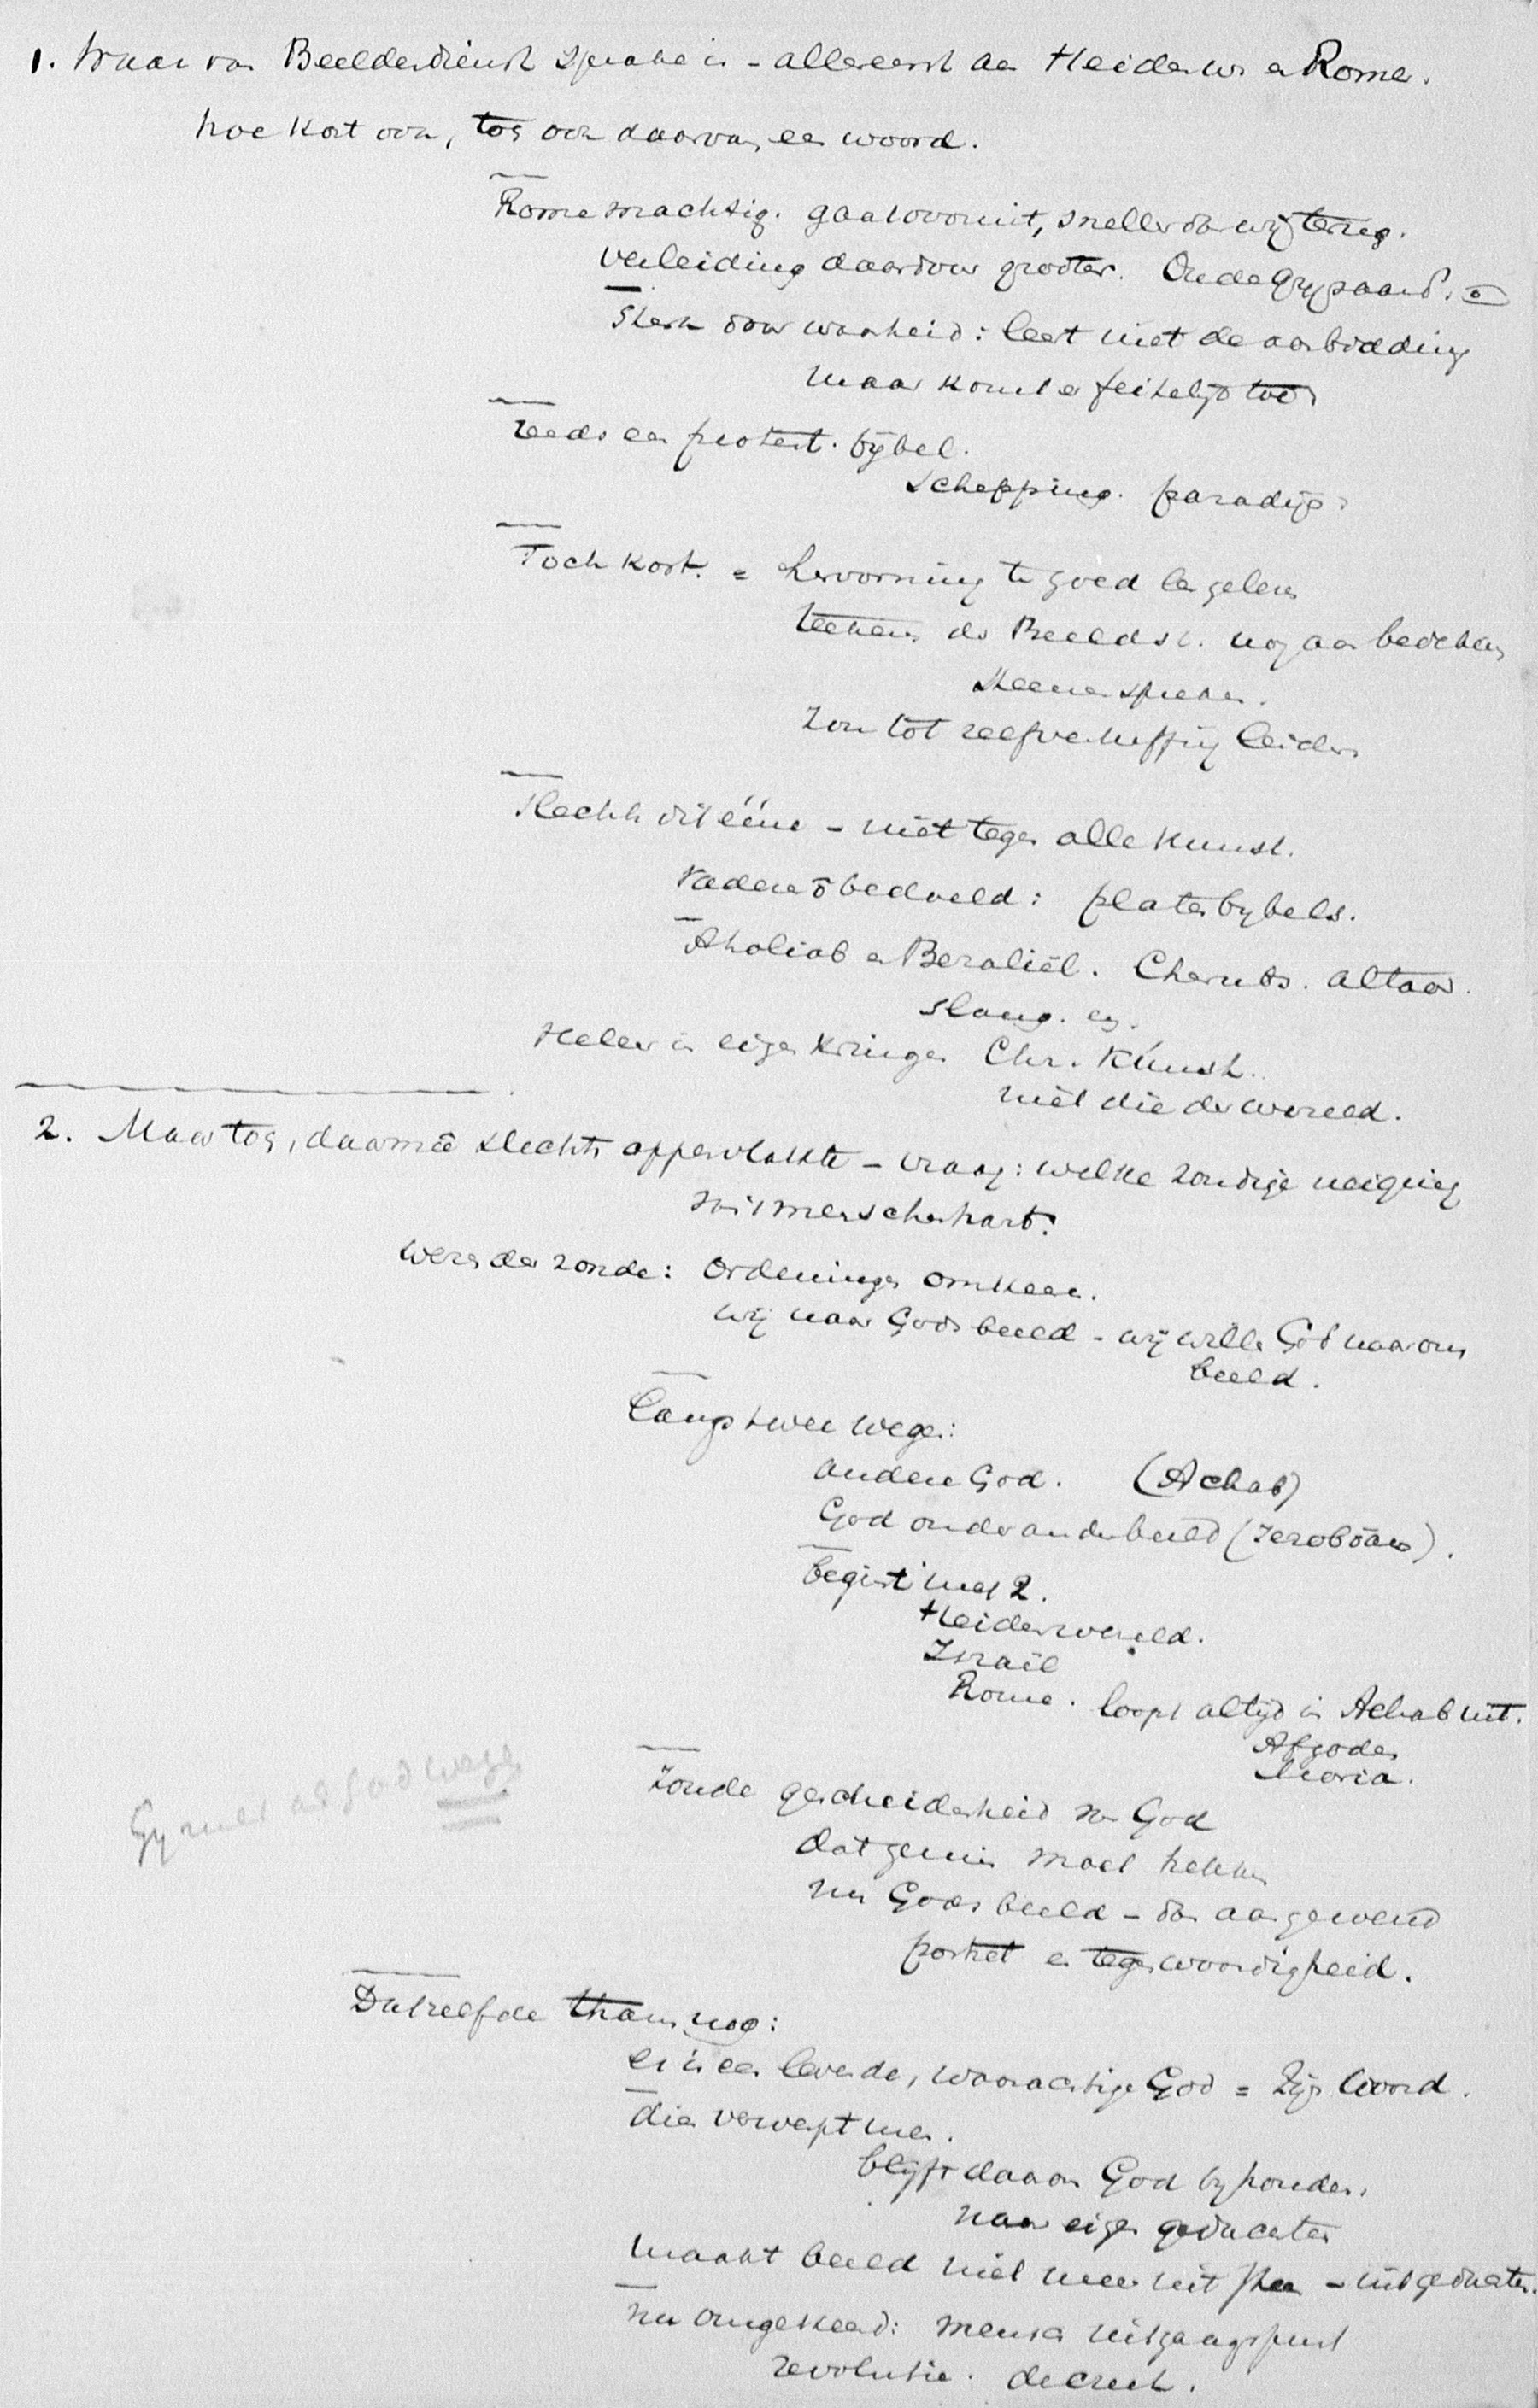 1. Waar van Beeldendienst sprake is - allereerst aan Heidenw en Rome.
hoe kort ook, tog ook daarvan een woord.
Rome machtig. gaat vooruit, sneller dan wij terug.
verleiding daardoor grooter. Oude
Sterk door waarheid: leert niet de aanbidding
maar komt er feitelijk toe
reeds een protest. bijbel.
schepping. paradijs
Toch kort. = hervorming te goed
teekens des Beeldst. nog aan
steenen spreken.
Zou tot zelfverheffing leiden
Slechts dit ééne - niet tegen alle kunst.
Vaderen ō bedoeld: platenbybels.
Aholiab en Bezaliël. Cherubs. altaar.
slang. en.
Helen in eigen kringen Chr. Kunst.
niet die der wereld.
2. Maar tog, daarmeê slechts oppervlakte - vraag: welke zondige neiging
in 's menschen hart?
Wezen der zonde: Ordeningen omkeeren.
wij naar Gods beeld - wij willen God naar ons
beeld.
Langs twee wegen:
andere God. (Achab)
God onder ander beeld (Jerobōam).
begint met 2.
Heidenwereld.
Israël
Rome. loopt altijd in Achab uit.
Afgoden
Maria.
Zonde gescheidenheid van God
dat gemis moet hebben
nu Gods beeld - dan aangewend
portret en tegenwoordigheid.
Datzelfde thans nog:
er is een levende, waarachtige God = Zijn Woord.
dien verwerpt men.
blijft daaraan God by houden,
naar eigen gedachten
maakt beeld niet meer uit steen - uit gedachten.
nu omgekeerd: mensch uitgangspunt
revolutie. decreet.